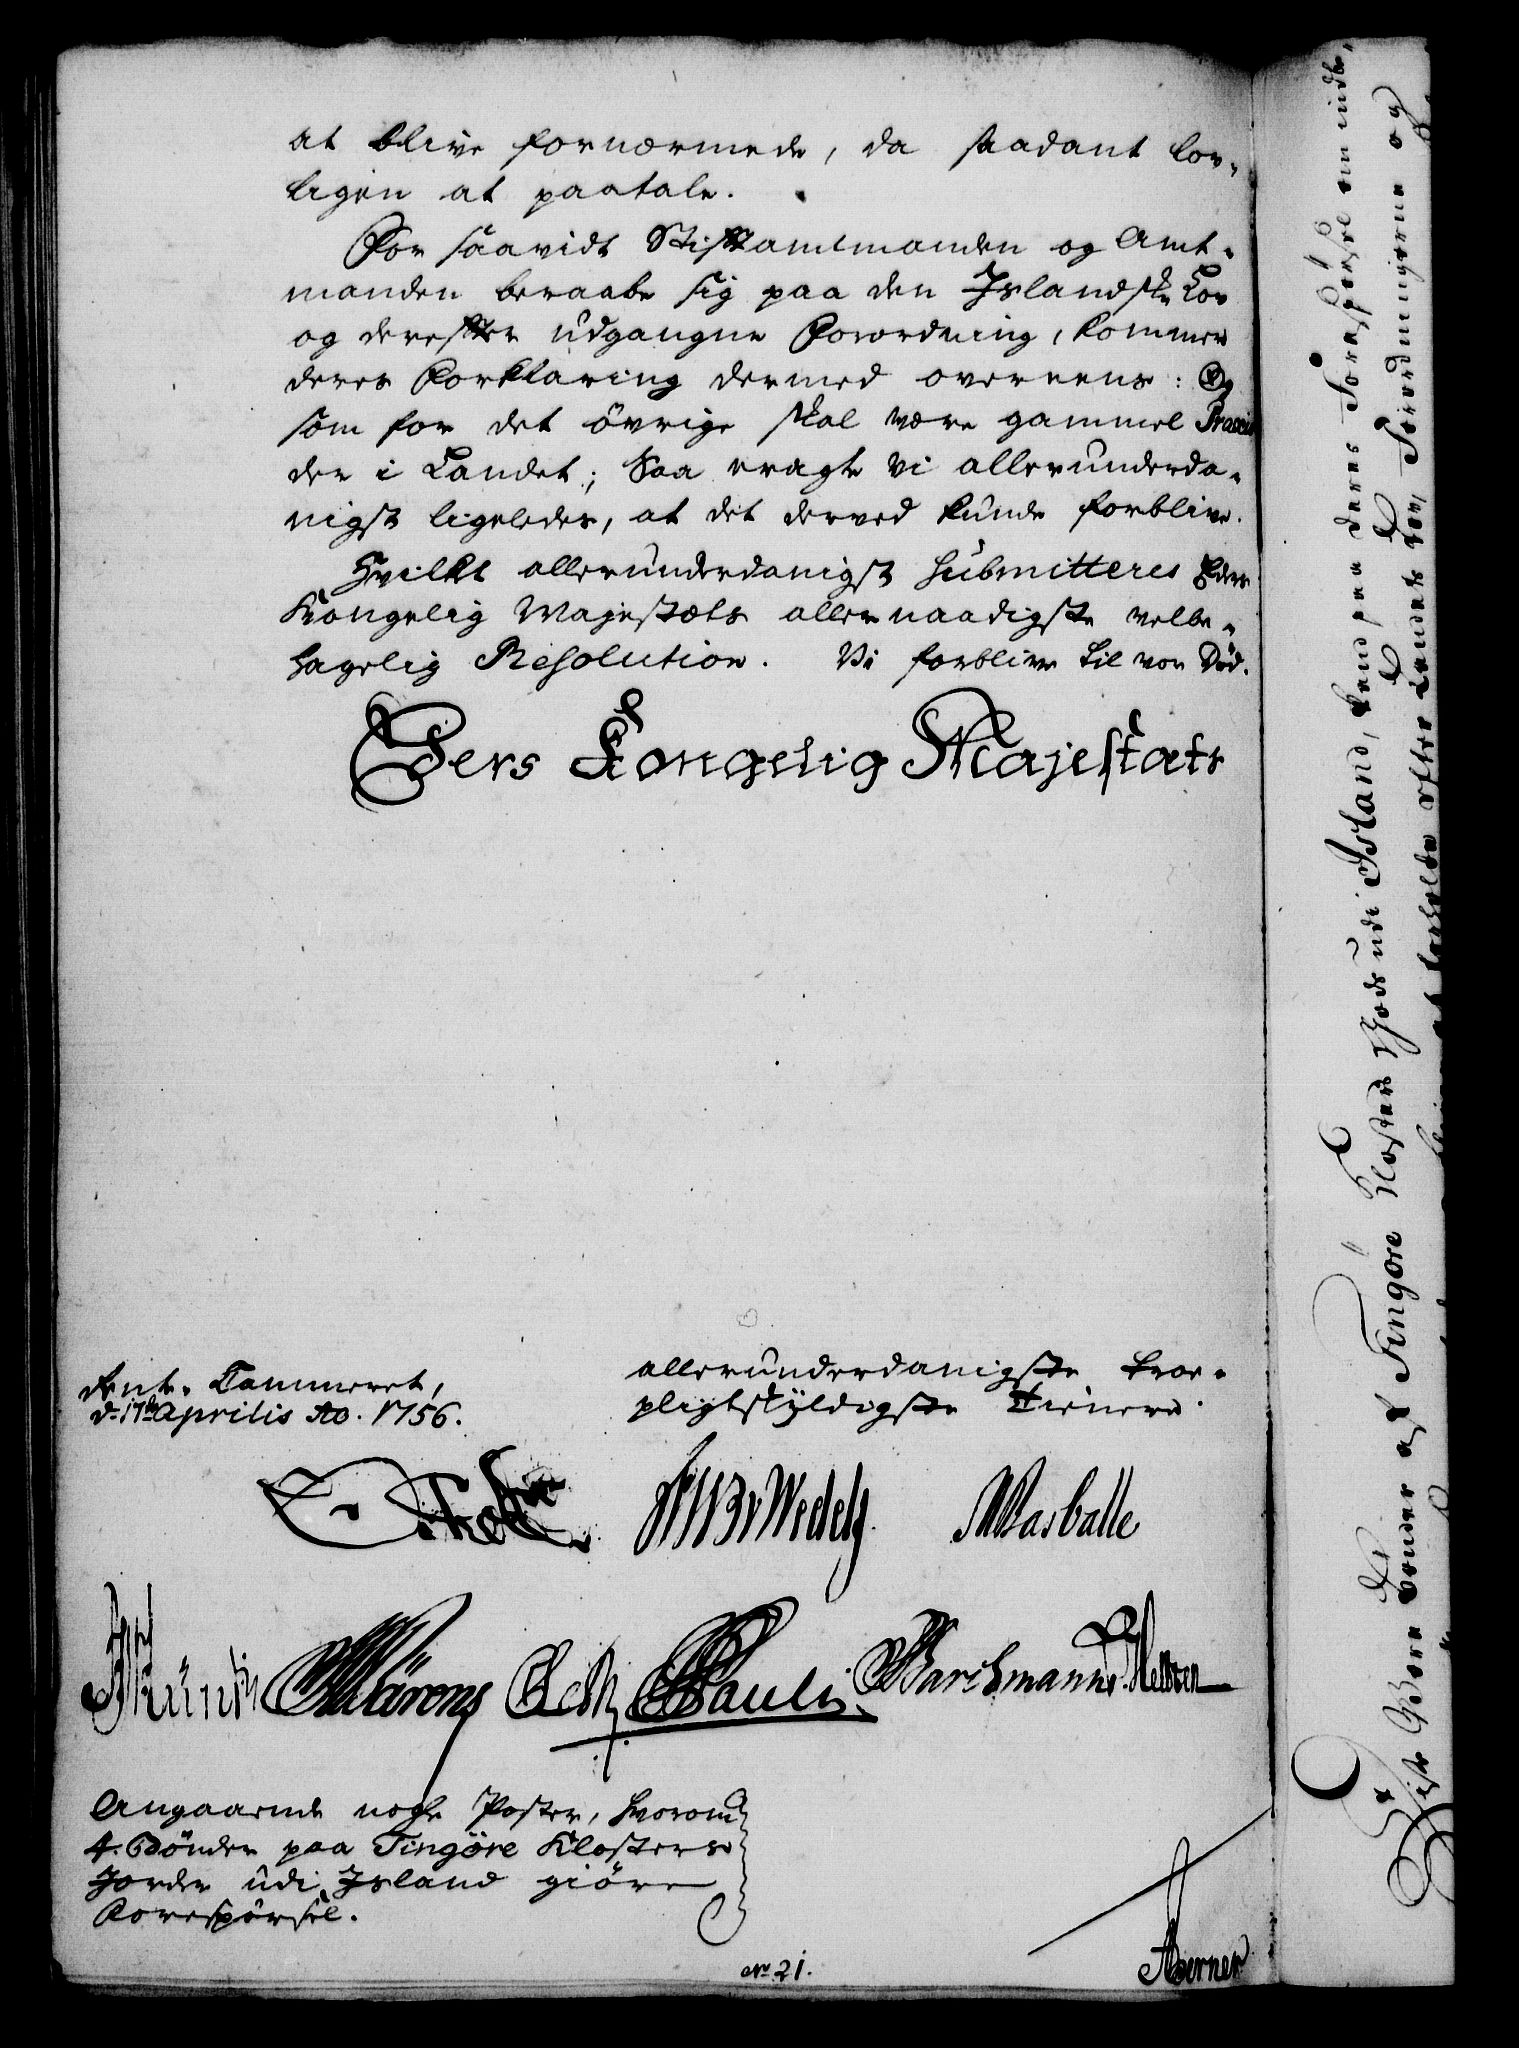 at blive fornærmede, da saadant lov-
ligen at paatale.
For saavidt Stiftamtmanden og Amt-
manden beraabe sig paa den Islandske Lov
og derefter udgangne Forordning, kommer
deres Forklaring dermed overeens: Og
som for det övrige skal være gammel Praxis
der i Landet; Saa eragte vi allerunderda-
nigst ligeledes, at det derved kunde forblive.
Hvilket allerunderdanigst submitteres Eders
Kongelig Majestæts allernaadigste velbe-
hagelig Resolution. Vi forblive til vor Död.
Eders Kongelig Majestæts
Rente-Cammeret,
d. 17de Aprilis Ao. 1756.
allerunderdanigste troe-
pligtskÿldigste Tienere.
Wedell
Basballe
Pauli
Barchmann
Angaaende nogle Poster, hvorom
4. Bönder paa Tingöre Klosters
Jorder udi Island giöre
Forespörsel.
No. 21.
Berner
Disse 4re Bönder af Tingöre Closters Gods udi Island, kand paa deres Forespörsel om indb.
at forholde efter Landets Lov, Forordningerne og